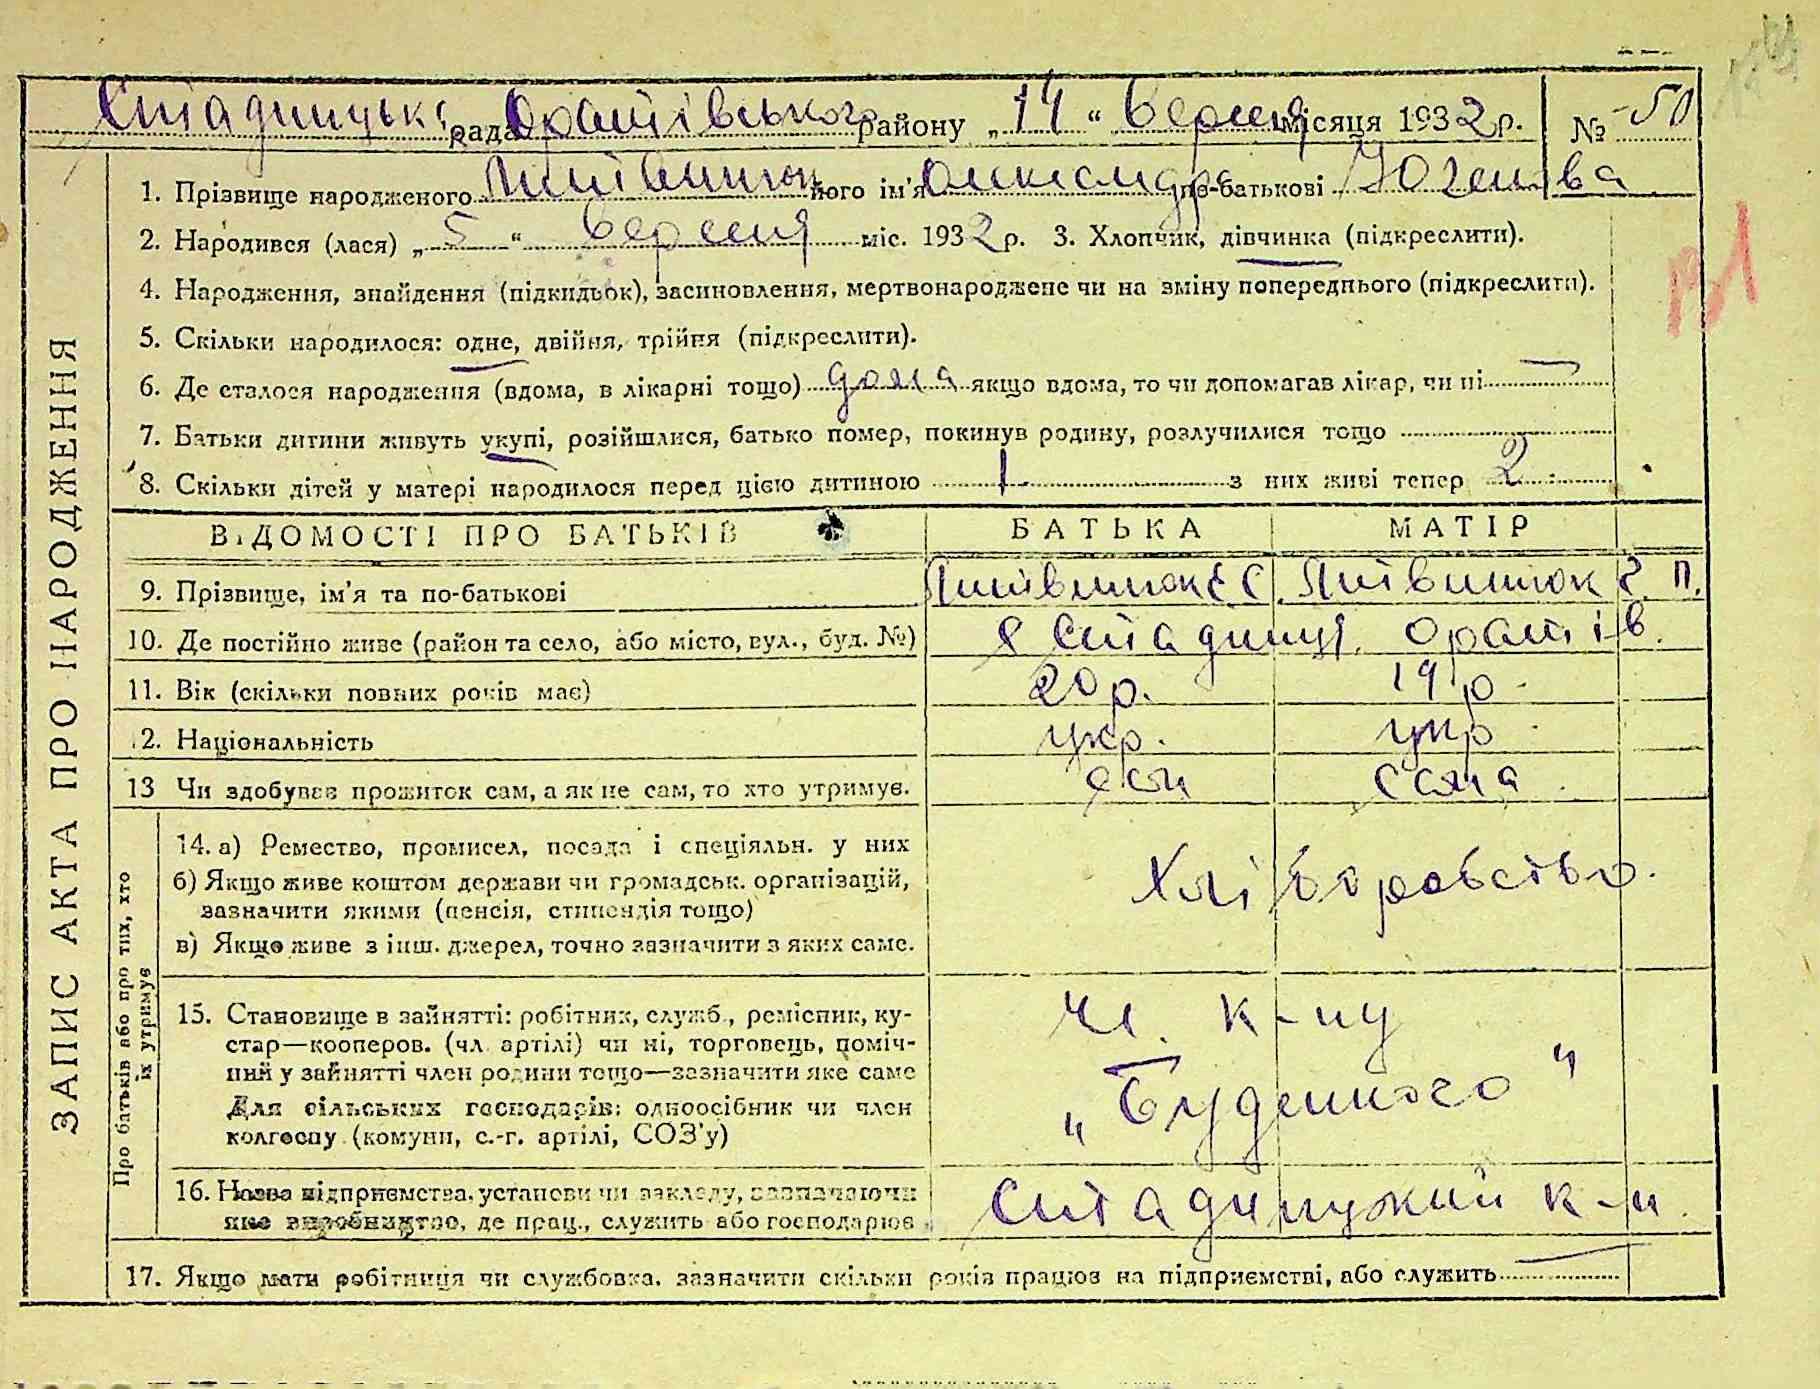 Стадницька рада Оратівського району „14“ Вересня місяця 1932 р. № 50
1. Прізвище народженого Литвинюк його ім'я Олександра по-батькові Югенова
2. Народився (лася) „5“ Вересня міс. 1932 р. 3. Хлопчик, дівчинка (підкреслити).
4. Народження, знайдення (підкидьок), засиновлення, мертвонароджене чи на зміну попереднього (підкреслити).
5. Скільки народилося: одне, двійня, трійня (підкреслити).
6. Де сталося народження (вдома, в лікарні тощо) дома якщо вдома, то чи допомагав лікар, чи ні —
7. Батьки дитини живуть укупі, розійшлися, батько помер, покинув родину, розлучилися тощо
8. Скільки дітей у матері народилося перед цією дитиною 1 з них живі тепер 2
ВІДОМОСТІ ПРО БАТЬКІВ БАТЬКА МАТІР
9. Прізвище, ім'я та по-батькові Литвинюк Є С. Литвинюк П.
10. Де постійно живе (район та село, або місто, вул., буд. №) с Стадниця. Оратів.
11. Вік (скільки повних років має) 20 р. 19 р.
12. Національність укр. укр
13 Чи здобував прожиток сам, а як не сам, то хто утримує. сам сама
14. а) Ремество, промисел, посада і спеціяльн. у них
б) Якщо живе коштом держави чи громадськ. організацій,
зазначити якими (пенсія, стипендія тощо)
Хліборобство.
в) Якщо живе з інш. джерел, точно зазначити з яких саме.
15. Становище в зайнятті: робітник, служб., реміспик, ку-
стар—кооперов. (чл. артілі) чи ні, торговець, поміч-
ний у зайнятті член родини тощо—зазначити яке саме
Для сільських господарів: одноосібник чи член
колгоспу (комуни, с.-г. артілі, СОЗ'у)
Чл. к-пу
„Буденного"
16. Назва підприємства, установи чи закладу, зазначаючи
яке виробництво, де прац., служить або господарює
Стадницкий к-п.
17. Якщо мати робітниця чи службовка, зазначити скільки років працює на підприємстві, або служить —
ЗАПИС АКТА ПРО НАРОДЖЕННЯ
Про батьків або про тих, хто
їх утримує